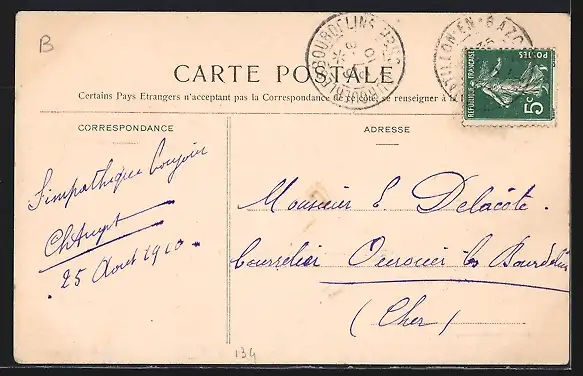 B
CARTE POSTALE
Certains Pays Etrangers n'acceptent pas la Correspondance de ce côté, se renseigner à la
CORRESPONDANCE
ADRESSE
RÉPUBLIQUE FRANÇAISE
POSTES
5c
Simpathique
25 Aout 1910
Monsieur E. Delacôte.
Bourrelier Ourouer les Bourdelins
(Cher)
134